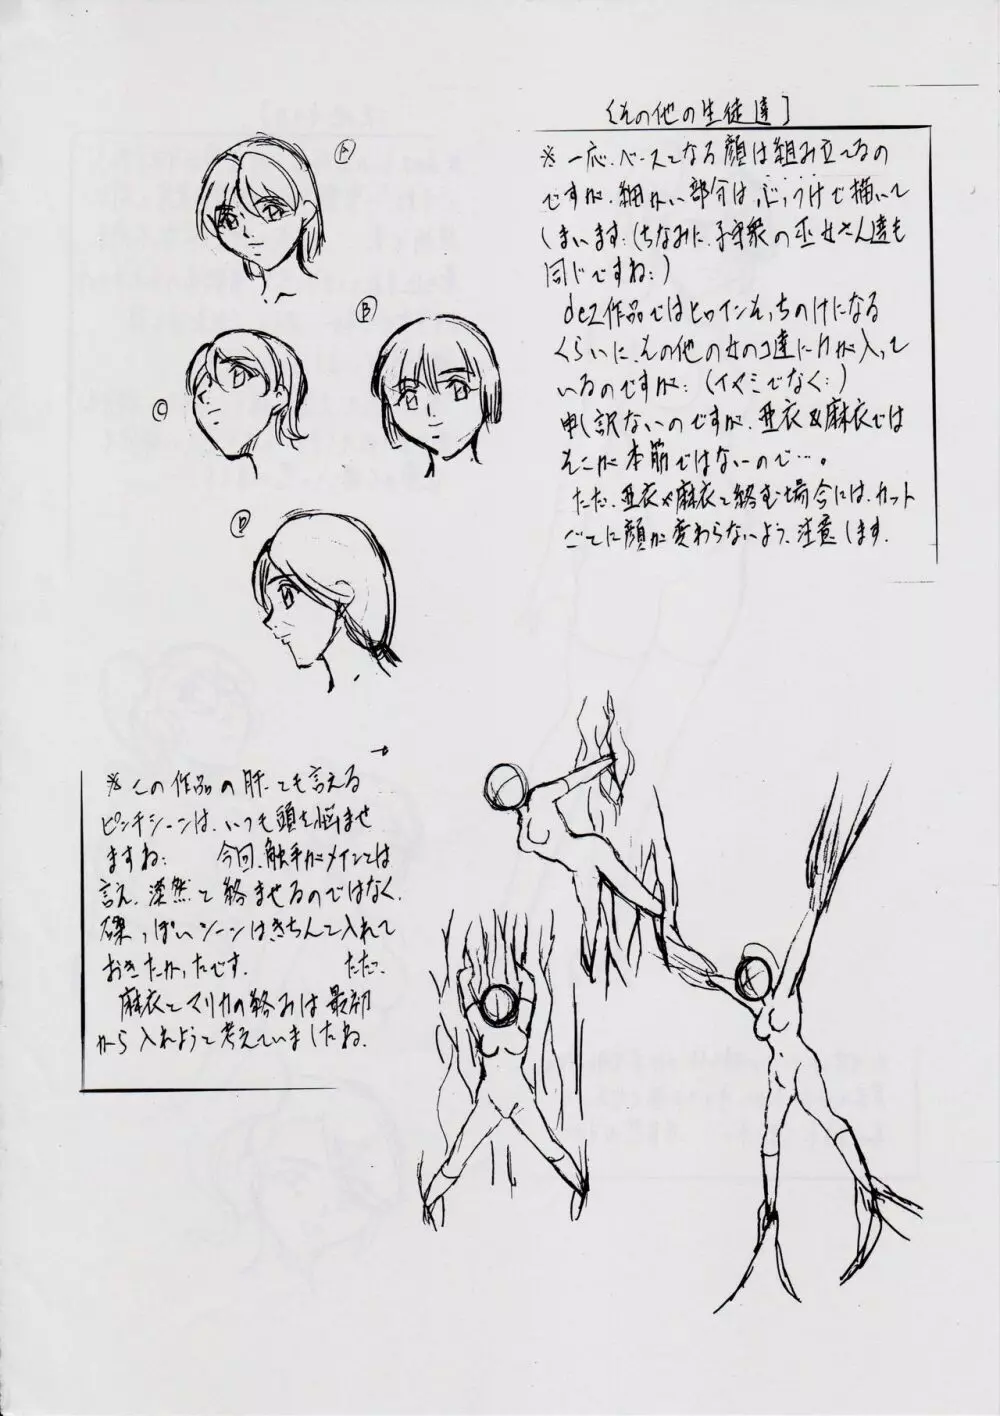 [その他の生徒達]
※一応、ベースとなる顔は組み立てるの
ですが、細かい部分は、ぶっつけで描いて
しまいます:(ちなみに、子守衆の巫女さん達も
同じですね:)
dez作品ではヒロインそっちのけになる
くらいに、その他の女のコ達に力が入って
いるのですが:(イヤミでなく:)
申し訳ないのですが、亜衣&麻衣では
そこが本筋ではないので…。
ただ、亜衣や麻衣と絡む場合には、カット
ごとに顔が変わらないよう、注意します.
A
B
C
D
※この作品の肝とも言える
ピンチシーンは、いつも頭を悩ませ
ますね: 今回、触手がメインとは
言え、漠然と絡ませるのではなく、
磔っぽいシーンはきちんと入れて
おきたかったです. ただ、
麻衣とマリカの絡みは最初
から入れようと考えていましたね.